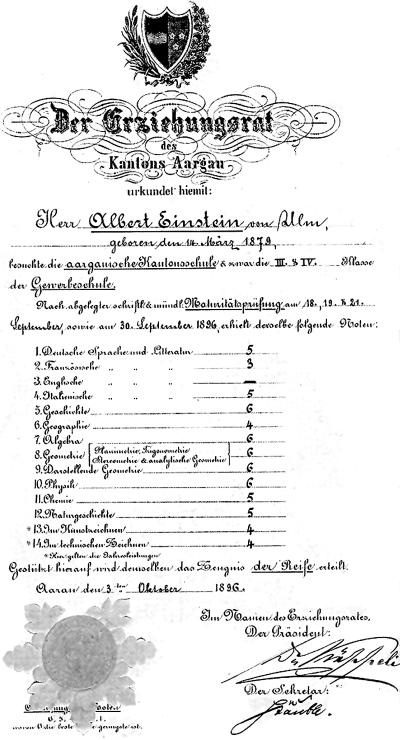 Der Erziehungsrat
des
Kantons Aargau
urkundet hiemit:
Herr Albert Einstein von Ulm,
geboren den 14. März 1879,
besuchte die aargauische Kantonsschule & zwar die III. & IV. Klasse
der Gewerbeschule.
Nach abgelegter schriftl. & mündl. Maturitätsprüfung am 18., 19. & 21.
September, sowie am 30. September 1896, erhielt derselbe folgende Noten:
1. Deutsche Sprache und Litteratur 5
2. Französische " " " 3
3. Englische " " " —
4. Italienische " " " 5
5. Geschichte 6
6. Geographie 4
7. Algebra 6
8. Geometrie (Planimetrie, Trigonometrie Stereometrie & analytische Geometrie) 6
9. Darstellende Geometrie 6
10. Physik 6
11. Chemie 5
12. Naturgeschichte 5
*13. Im Kunstzeichnen 4
*14. Im technischen Zeichnen 4
*Hier gelten die Jahresleistungen
Gestützt hierauf wird demselben das Zeugnis der Reife erteilt.
Aarau den 3ten Oktober 1896.
Im Namen des Erziehungsrates,
Der Präsident:
Der Sekretär:
wovon 6 die beste geringste ist.